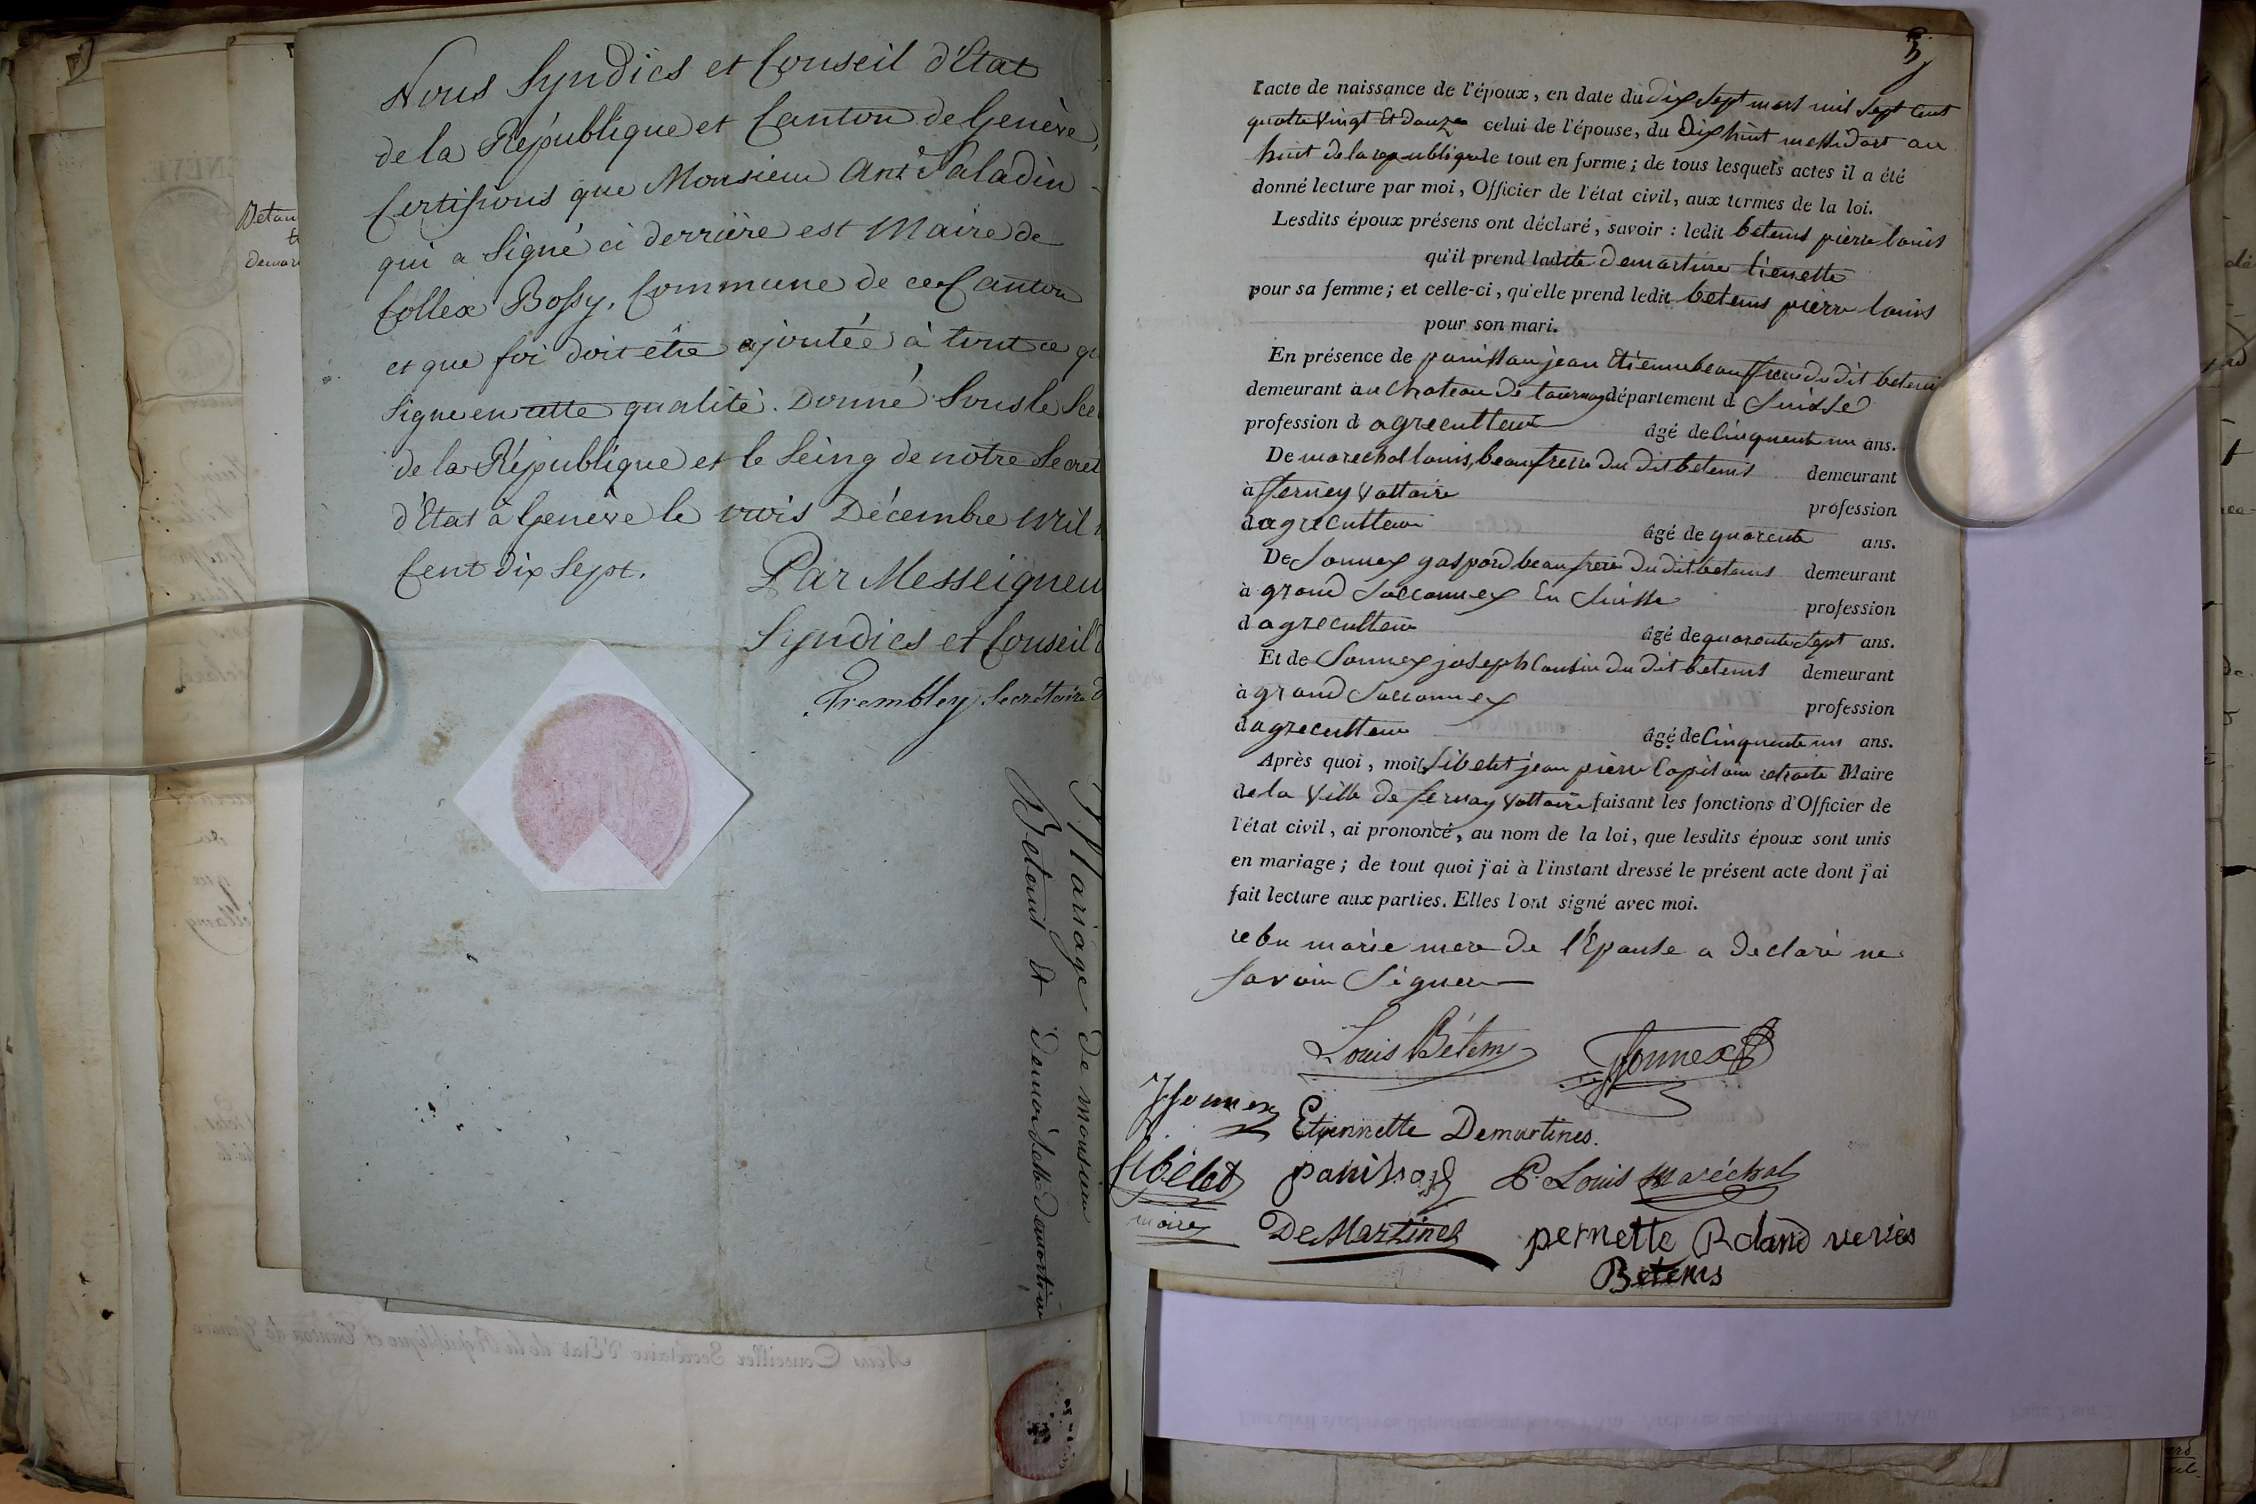 Nous Syndics et Conseil d'Etat
de la République et Canton de Genève,
Certifions que Monsieur Ant.e Saladin
qui a signé ci derrière est Maire de
Collex Bossy, Commune de ce Canton
et que foi doit être ajoutée à tout ce qu
signe en cette qualité. Donné sous le Sce
de la République et le Seing de notre Secret
d'Etat à Genève le trois Décembre mil
Cent dix Sept.
Par Messeigneu
Syndics et Conseil
Trembley Secrétaire d
Mariage de monsieur
Betems et demoiselle Demartine
3
l'acte de naissance de l'époux, en date du dix sept mars mil sept cent
quatre vingt et douze celui de l'épouse, du dix huit messidort an
huit de la republique le tout en forme; de tous lesquels actes il a été
donné lecture par moi, Officier de l'état civil, aux termes de la loi.
Lesdits époux présens ont déclaré, savoir : ledit betems pierre louis
qu'il prend ladite demartine tienette
pour sa femme; et celle-ci, qu'elle prend ledit betems pierre louis
pour son mari.
En présence de panissau jean Etienne beaufrere du dit betems
demeurant au chateau de tournay département d Suisse
profession d agreculteur âgé de Cinquent un ans.
De marechal louis, beaufrere du dit betems demeurant
à fferney Voltaire profession
d agreculteur âgé de quarente ans.
De Sonnex gaspard beaufrere du dit betems demeurant
à grand Sacconnex En Suisse profession
d agreculteur âgé de quarente sept ans.
Et de Sonnex joseph Cousin du dit betems demeurant
à grand Sacconnex profession
d agreculteur âgé de Cinquente un ans.
Après quoi, moi Sibelet jean pierre Capitaine retraite Maire
de la Ville de fernay Voltaire faisant les fonctions d'Officier de
l'état civil, ai prononcé, au nom de la loi, que lesdits époux sont unis
en mariage; de tout quoi j'ai à l'instant dressé le présent acte dont j'ai
fait lecture aux parties. Elles l'ont signé avec moi.
marie mere de l'Epouse a declaré ne
savoir Signer
Louis Bétems Sonnex
JSonnex Etiennette Demartines.
Sibelet panissod P. Louis Maréchal
maire DeMartines pernette Roland veries
Betems
Nous Conseiller Secrétaire d'Etat de la République et Canton de Genève